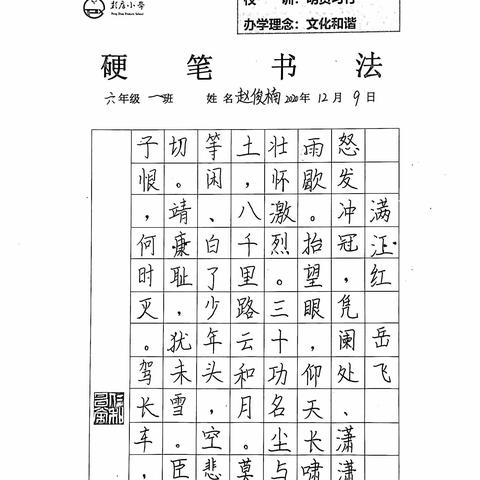 办学理念：文化和谐
硬 笔 书 法
六年级 一班 姓名 赵俊楠 2020年 12月 9日
满江红 岳飞
怒发冲冠，凭阑处、潇潇
雨歇。抬望眼，仰天长啸
壮怀激烈。三十功名尘与
土，八千里路云和月。莫
等闲、白了少年头，空悲
切。靖康耻，犹未雪。臣
子恨，何时灭。驾长车，